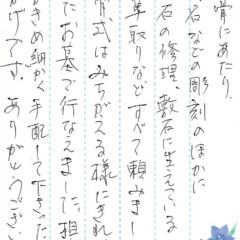 骨にあたり、
石などの彫刻のほかに
石の修理、敷石に生えている
草取りなどすべて頼みまし
骨式はみちがえる様にきれ
たお墓で行なえました。担
きめ細かく手配して下さった
かげです。ありがとうござい